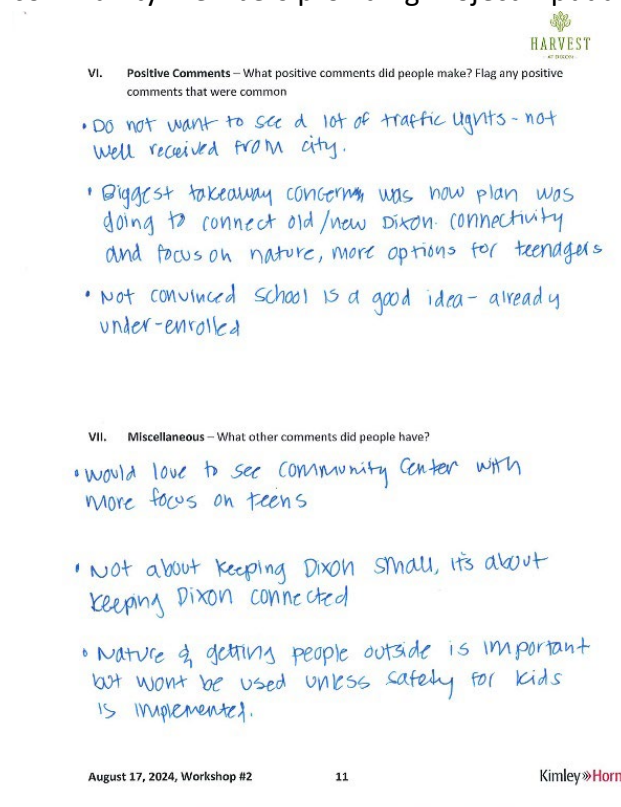 HARVEST
AT DIXON
VI. Positive Comments – What positive comments did people make? Flag any positive
comments that were common
• Do not want to see a lot of traffic lights - not
well received from city.
• Biggest takeaway concern was how plan was
going to connect old/new Dixon. connectivity
and focus on nature, more options for teenagers
• Not convinced school is a good idea - already
under-enrolled
VII. Miscellaneous – What other comments did people have?
• would love to see community center with
more focus on teens
• Not about keeping Dixon small, it's about
keeping Dixon connected
• Nature & getting people outside is important
but wont be used unless safety for kids
is implemented.
August 17, 2024, Workshop #2 11 Kimley»Horn